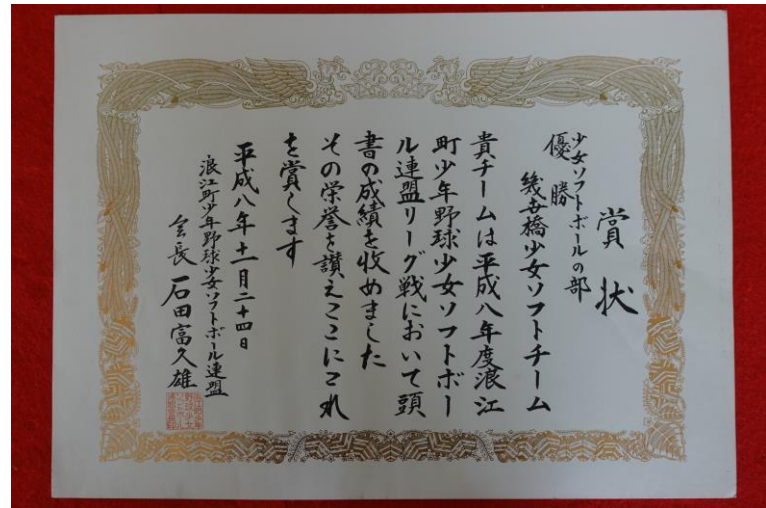 賞状
少女ソフトボールの部
優勝
幾世橋少女ソフトチーム
貴チームは平成八年度浪江
町少年野球少女ソフトボー
ル連盟リーグ戦において頭
書の成績を収めました
その栄誉を讃えここにこれ
を賞します
平成八年十一月二十四日
浪江町少年野球少女ソフトボール連盟
会長 石田富久雄